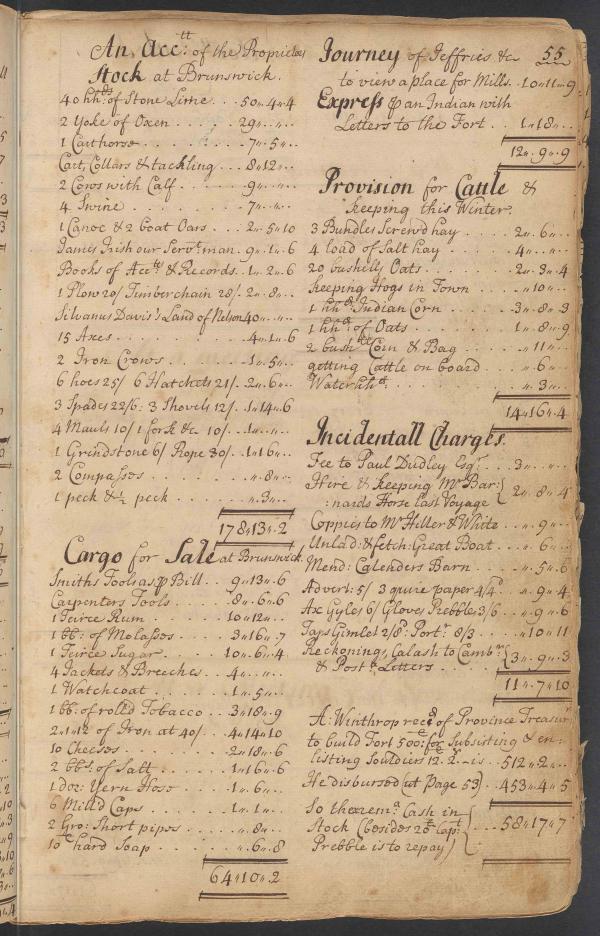 An Acc:tt of the Proprietors
Stock at Brunswick.
40 hhds: of Stone Lime . . 50„4„4
2 Yoke of Oxen . . . . 29„..„..
1 Carthorse . . . . . 7„5„..
Cart, Collars & tackling . . . 8„12„..
2 Cows with Calf . . . . . 9„..„..
4 Swine . . . . . . . 7„..„..
1 Canoe & 2 boat Oars . . . 2„5„10
James Irish our Servt man . 9„1„6
Books of Acctts & Records . . 1„2„6
1 Plow 20/ Timberchain 28/ . 2„8„..
Silvanus Davis's Land of Nelson 40„..„..
15 Axes . . . . . . . 4„1„6
2 Iron Crows . . . . . 1„5„..
6 hoes 25/ 6 Hatchets 21/ . . 2„6„..
3 Spades 22/6: 3 Shovels 12/. . 1„14„6
4 Mauls 10/ 1 fork &c 10/ . . . 1„..„..
1 Grindstone 6/ Rope 30/. . . 1„16„..
2 Compasses . . . . . . ..„8„..
1 peck & ½ peck . . . . . ..„3„..
178„13„2
Cargo for Sale at Brunswick.
Smiths Tools as p Bill . . 9„13„6
Carpenters Tools . . . . 8„6„6
1 Teirce Rum . . . . . 10„12„..
1 bb: of Molasses . . . . 3„16„7
1 Teirce Sugar . . . . . 10„6„4
4 Jackets & Breeches . . . 4„..„..
1 Watchcoat . . . . . . 1„5„..
1 bb: of rolld Tobacco . . . 3„18„9
2„1„12 of Iron at 40/. . . 4„14„10
10 Cheeses . . . . . . . 2„18„6
2 bbs: of Salt . . . . . 1„16„6
1 doz: Yern Hose . . . . 1„6„..
6 Milld Caps . . . . . . 1„1„..
2 Gro: Short pipes . . . . ..„8„..
10 hard Soap . . . . . ..„6„8
64„10„2
55
Journey of Jeffries &c
to view a place for Mills . . 10„11„9
Express p an Indian with
Letters to the Fort . . 1„18„..
12„9„9
Provision for Cattle &
keeping this Winter.
3 Bundles Screwd hay . . . . 2„6„..
4 load of Salt hay . . . . 4„..„..
20 bushells Oats . . . . . 2„3„4
keeping Hogs in Town . . . ..„10„..
1 hhd Indian Corn . . . . 3„8„3
1 hhd of Oats . . . . . . 1„8„9
2 bushlls Corn & Bag . . . . ..„11„..
getting Cattle on board . . . ..„6„..
Water hhd. . . . . . . ..„3„..
14„16„4
Incidentall Charges.
Fee to Paul Dudley Esqr . . 3„..„..
Hire & keeping Mr Bar:
:nards Horse last Voyage 2„8„4
Coppies to Mr Hiller & White . . ..„9„..
Unlad: & fetch: Great Boat . . . ..„6„..
Mend: Calenders Barn . . . . ..„5„6
Advert: 5/ 3 quire paper 4/4 . ..„9„4
Ax Gyles 6/ Gloves Prebble 3/6 . . ..„9„6
Taps Gimlet 2/8d: Portr 8/3 . . . ..„10„11
Reckoning, Calash to Cambr
& Posta Letters . . . . 3„9„3
11„7„10
A: Winthrop recd of Province Treasur
to build Fort 500: for Subsisting & en=
listing Souldiers 12„2„- is . 512„2„..
He disbursed (at Page 53) . . 453„4„5
So there rema. Cash in
Stock (besides 20 Capt 58„17„7
Prebble is to repay)